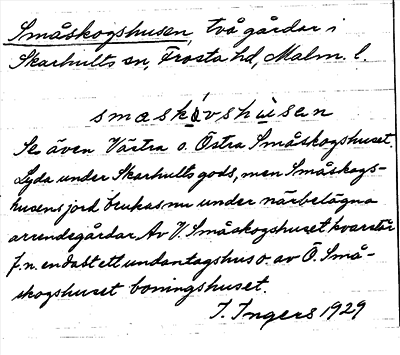 Småskogshusen, två gårdar i
Skarhults sn, Frosta hd, Malm. l.
smaskåvshusen
Se även Västra o. Östra Småskogshuset.
Lyda under Skarhults gods, men Småskogs-
husens jord brukas nu under närbelägna
arrendegårdar. Av V. Småskogshuset kvarstår
f.n. endast ett undantagshus o. av Ö. Små-
skogshuset boningshuset.
I. Ingers 1929